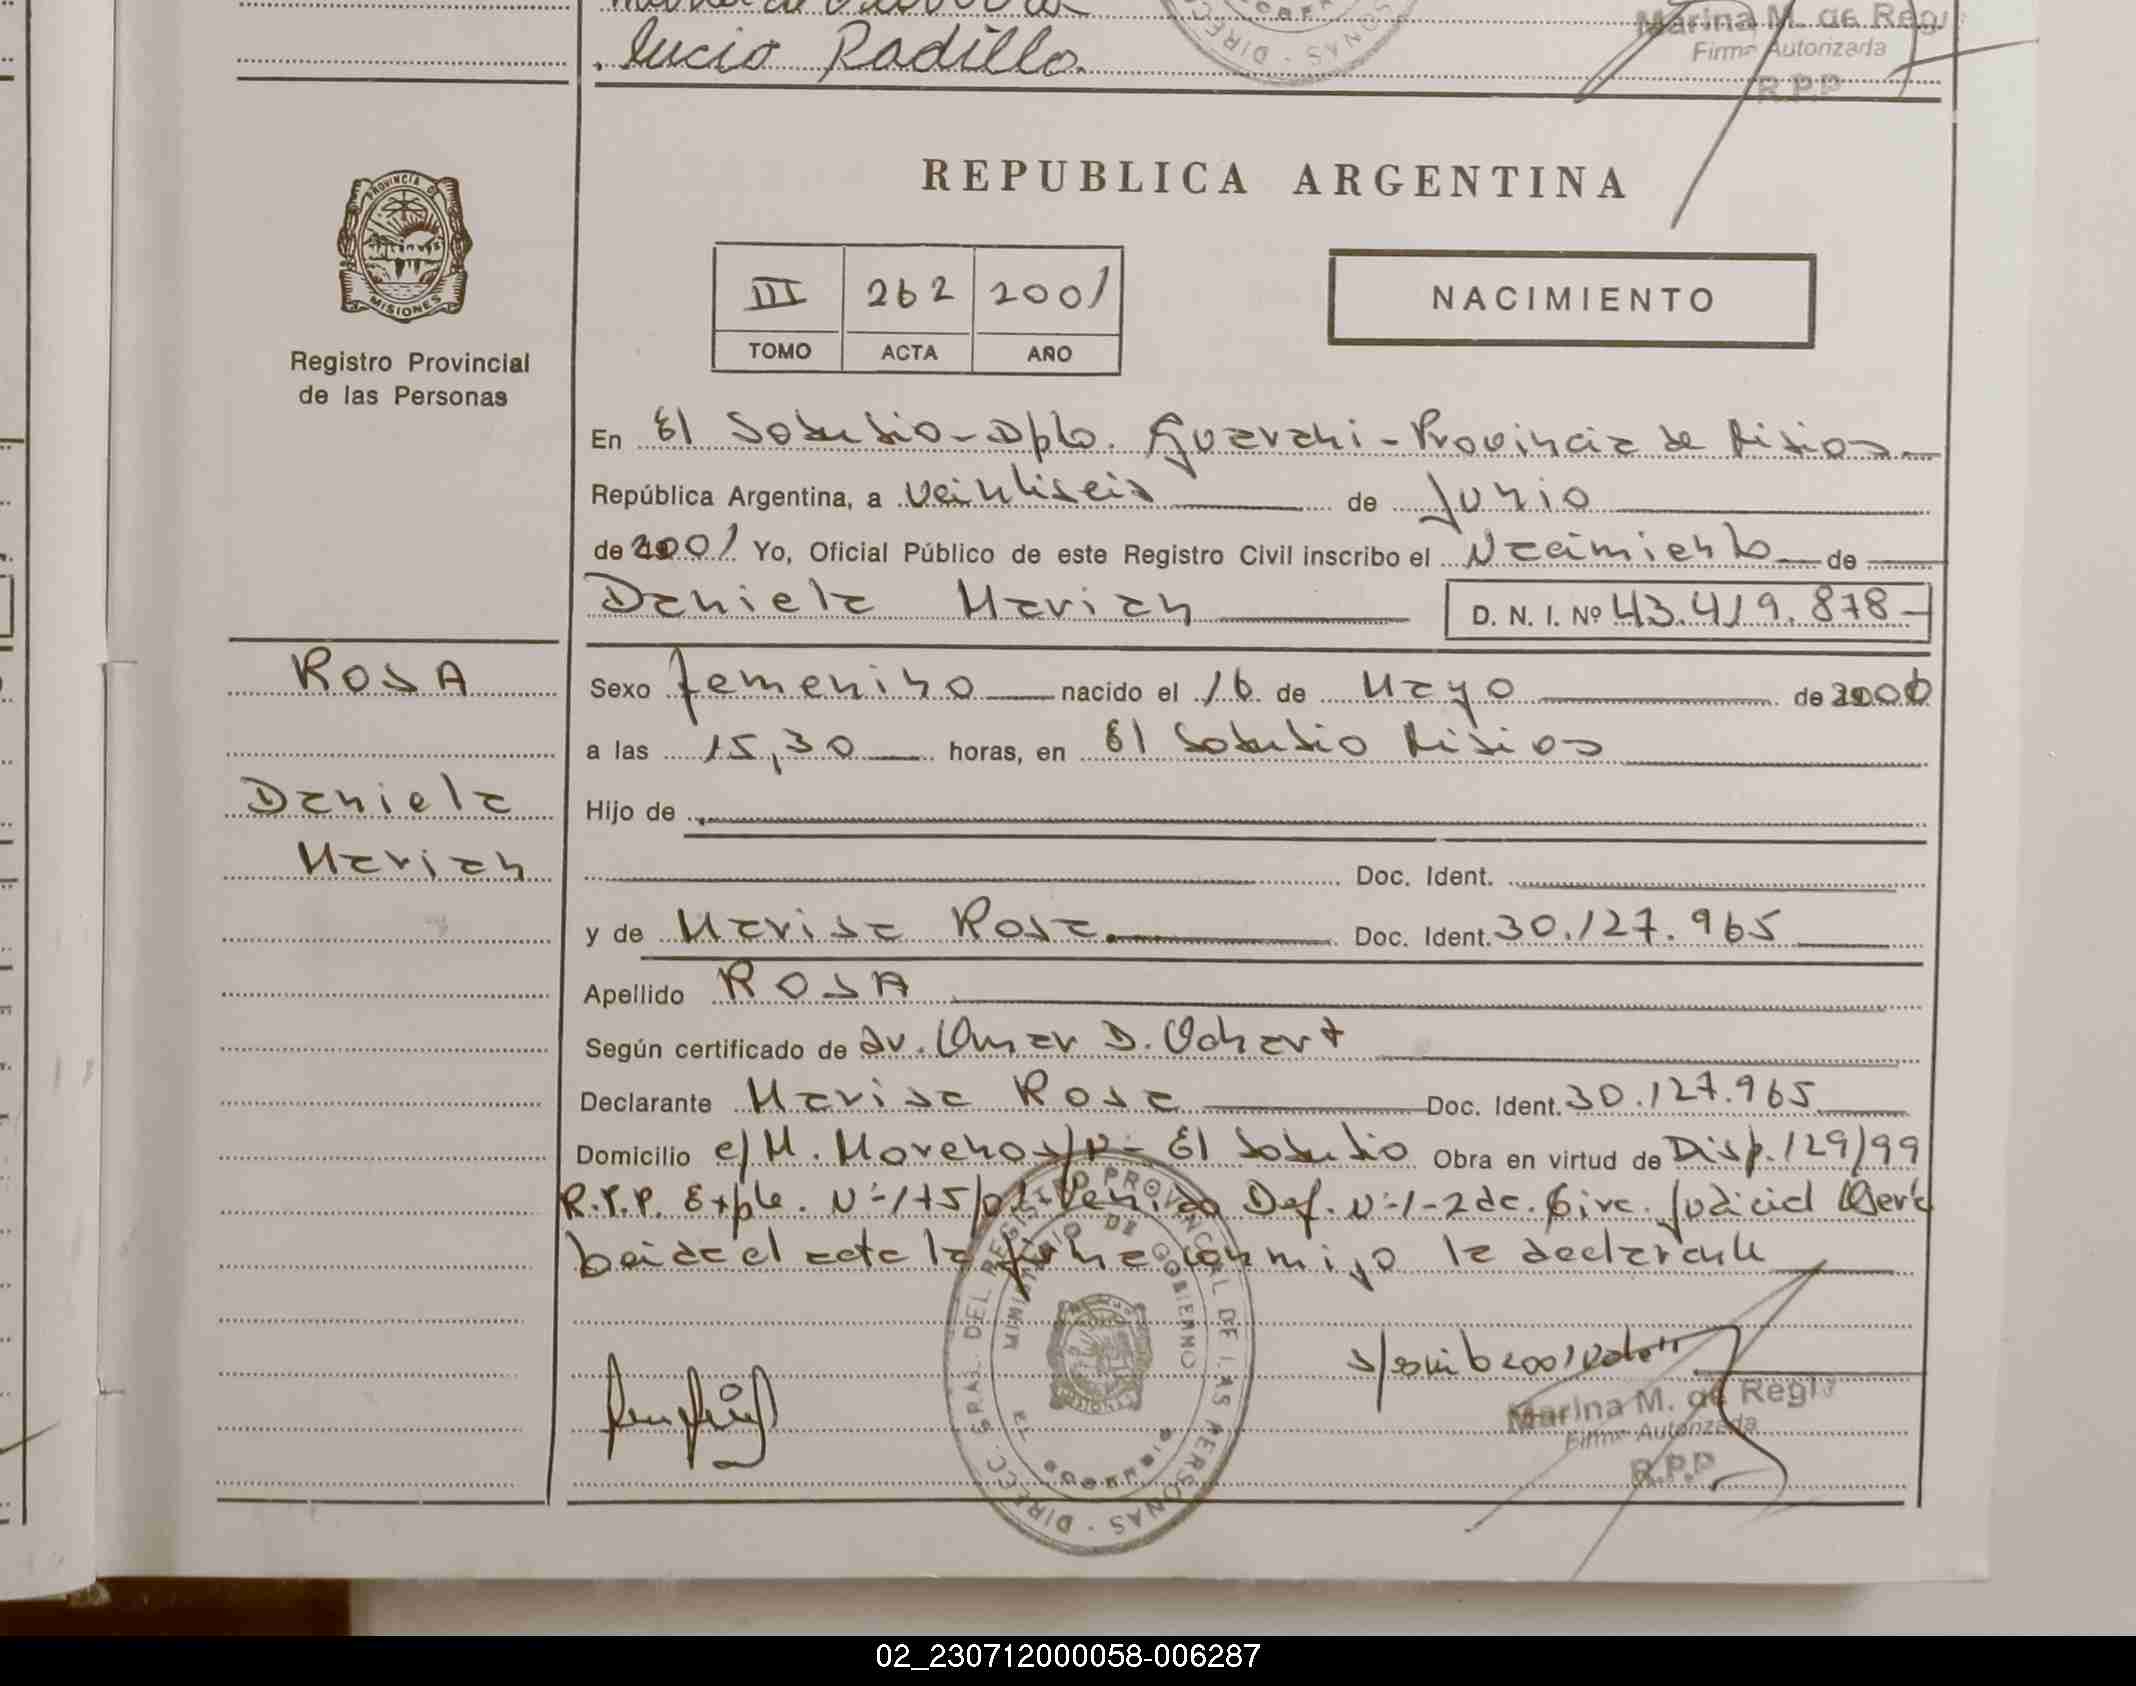 Lucio Radillo.
Marina M. de Regi
Firma Autorizada
R.P.P
PROVINCIA DE
MISIONES
Registro Provincial
de las Personas
REPUBLICA ARGENTINA
III 262 2001
TOMO ACTA AÑO
NACIMIENTO
En El Soberbio - Dpto. Guarani - Provincia de Misiones
República Argentina, a veintiseis de Junio
de 2001 Yo, Oficial Público de este Registro Civil inscribo el Nacimiento de
Daniela Marian D. N. I. Nº 43.419.878
ROSA
Sexo femenino nacido el 16 de Mayo de 2000
a las 15,30 horas, en El Soberbio Misiones
Daniela
Marian
Hijo de
Doc. Ident.
y de Marisa Rosa Doc. Ident. 30.127.965
Apellido ROSA
Según certificado de Dr. Omar D. Ochart
Declarante Marisa Rosa Doc. Ident. 30.127.965
Domicilio c/ M. Moreno s/Nº - El Soberbio Obra en virtud de Disp. 129/99
R.P.P. Expte. Nº 175/01 Def. Nº 1 - 2da. Circ. Judicial Oberá
Leida el acta la firma conmigo la declarante
DIRECC. GRAL. DEL REGISTRO PROVINCIAL DE LAS PERSONAS
MINISTERIO DE GOBIERNO
EL SOBERBIO
2001 Vale"
Marina M. de Regi
Firma Autorizada
R.P.P
02_230712000058-006287